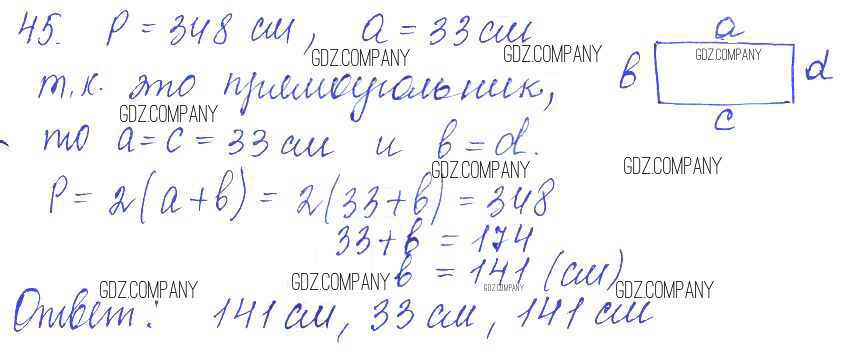 45. P = 348 см, a = 33 см
a
GDZ.COMPANY GDZ.COMPANY GDZ.COMPANY
т.к. это прямоугольник, b d
GDZ.COMPANY
c
то a = c = 33 см и b = d.
GDZ.COMPANY GDZ.COMPANY
P = 2(a+b) = 2(33+b) = 348
33+b = 174
b = 141 (см)
GDZ.COMPANY GDZ.COMPANY GDZ.COMPANY GDZ.COMPANY
Ответ: 141 см, 33 см, 141 см